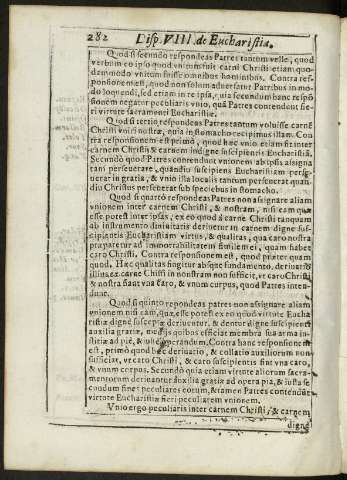 282 Disp. VIII. de Eucharistia.
Quod si secundo respondeas Patres tantum velle, quod
verbum eo ipso quod unitum fuit carni Christi etiam quo-
dammodo unitum fuisse omnibus hominibus. Contra res-
ponsionem est, quod non solum adversatur Patribus in mo-
do loquendi, sed etiam in re ipsa, quia secundum hanc respō
sionem negatur peculiaris unio, quā Patres contendunt fie-
ri virtute sacramenti Eucharistiæ.
Quod si tertio respondeas Patres tantum voluisse carnē
Christi uniri nostræ, quia in stomacho recipimus illam. Con
tra responsionem est primò, quod hæc unio etiam fit inter
carnem Christi & carnem indignè suscipientis Eucharistiā.
Secundò quod Patres contendunt unionem ab ipsis assigna
tam perseverare, quandiu suscipiens Eucharistiam perse-
verat in gratia, & unio illa localis tantum perseverat quan-
diu Christus perseverat sub speciebus in stomacho.
Quod si quartò respondeas Patres non assignare aliam
unionem inter carnem Christi, & nostram, nisi eam quæ
esse potest inter ipsas, ex eo quod à carne Christi tanquam
ab instrumento divinitatis derivetur in carnem digne sus-
cipientis Eucharistiam virtus, & qualitas, qua caro nostra
præparetur ad immortalitatem similem ei, quam habet
caro Christi. Contra responsionem est, quod præter quam
quod, Hæc qualitas fingitur absque fundamento, derivatio
illius ex carne Christi in nostram non sufficit, ut caro Christi
& nostra fiant una caro, & unum corpus, quod Patres inten-
dunt.
Quod si quinto repondeas patres non assignare aliam
unionem nisi eam, quæ esse potest ex eo quod virtute Eucha
ristiæ digne susceptæ deriventur, & dentur digne suscipienti
auxilia gratiæ, ex vi quibus efficiat membra sua arma in-
stitiæ ad piè, & iustè operandum. Contra hanc responsionem
est, primò quod hæc derivatio, & collatio auxiliorum non
sufficiat, ut caro Christi, & caro suscipientis fint una caro,
& unum corpus. Secundò quia etiam virtute aliorum sacra-
mentorum derivantur auxilia gratiæ ad opera pia, & iusta se
cundum fines peculiares eorum, & tamen Patres contendunt
virtute Eucharistiæ fieri peculiarem unionem.
Unio ergo peculiaris inter carnem Christi, & carnem
dignè